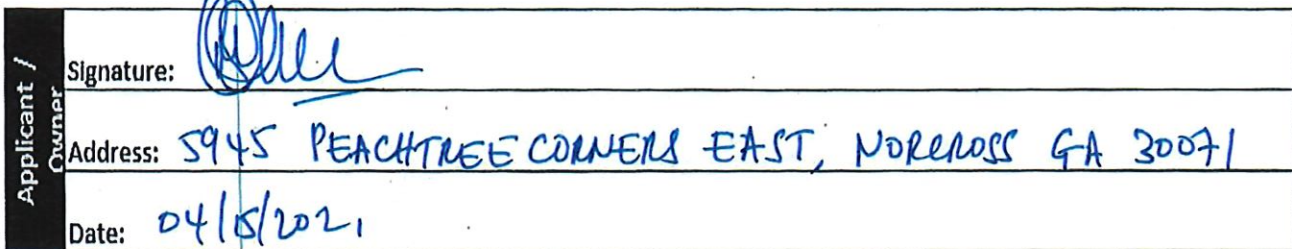 Applicant /
Owner
Signature:
Address: 5945 PEACHTREE CORNERS EAST, NORCROSS GA 30071
Date: 04/15/2021